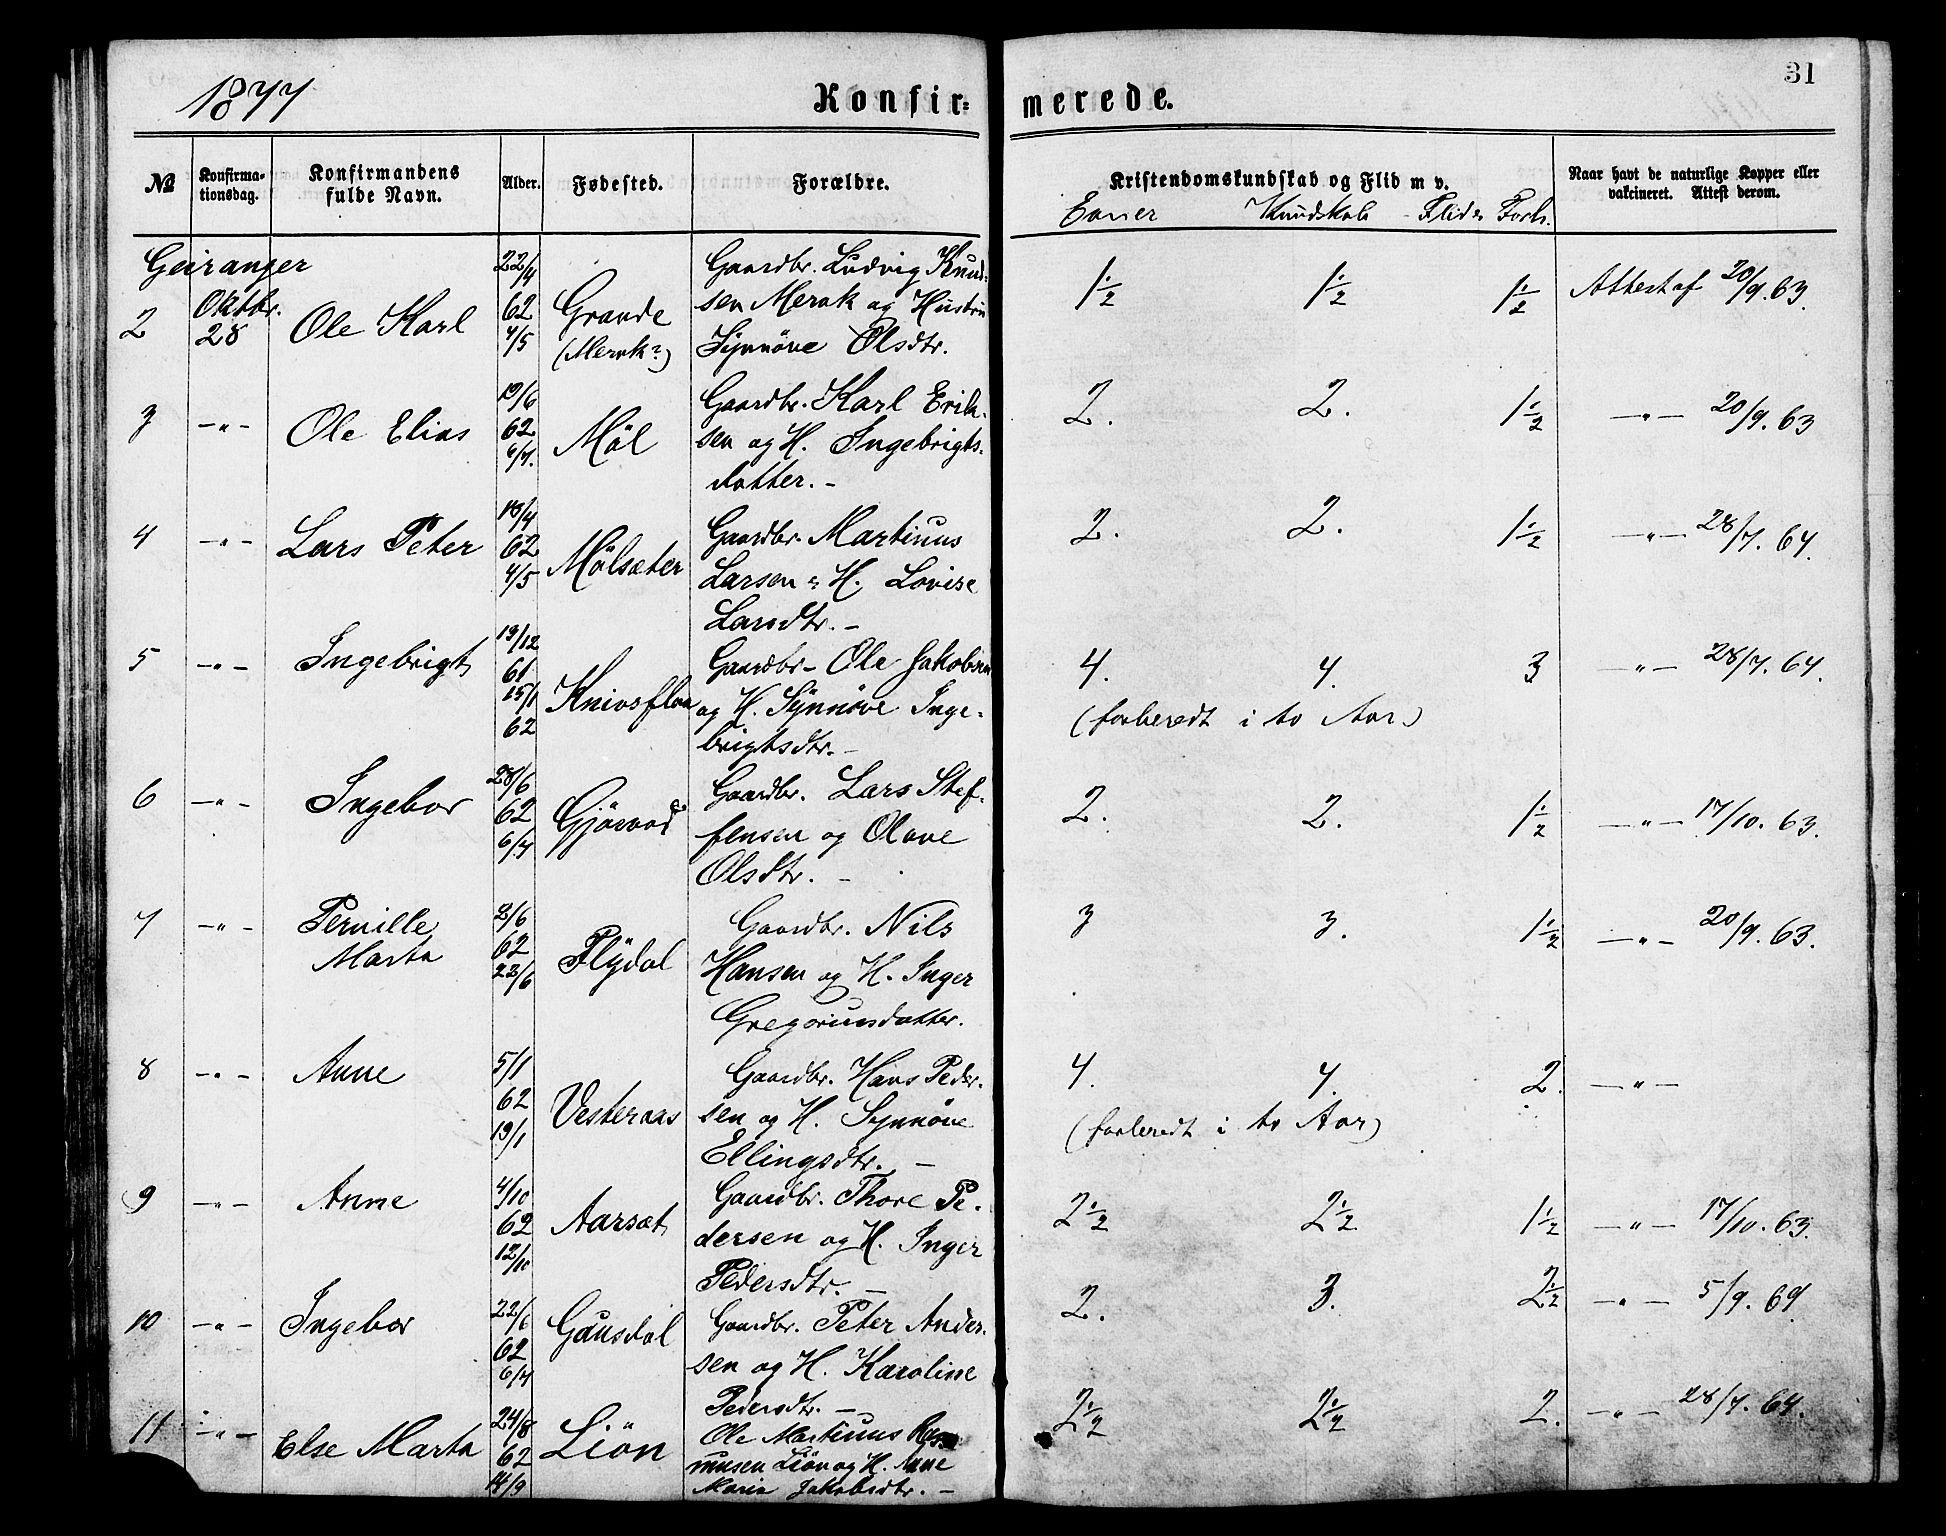 1877 Konfir= merede. 31
№ Konfirma-tionsdag. Konfirmandens fulde Navn. Alder. Fødested. Forældre. Kristendomskundskab og Flid m v. Naar havt de naturlige Kopper eller vakcineret. Attest derom.
Evner Kundskab Flid & Forh.
Geiranger 22/4 Gaardbr. Ludvig Knud-
2 Oktbr. 28 Ole Karl 62 Grande sen Merok og Hustru 1 1/2 1 1/2 1 1/2 Attest af 20/9. 63
4/5 (Merok?) Synnöve Olsdtr.
19/6 Gaardbr. Karl Erik-
3 —"— Ole Elias 62 Möl sen og H. Ingebrigts- 2. 2. 1 1/2 —"— 20/9. 63
6/7. datter. —
18/4 Gaardbr. Martinus
4 —"— Lars Peter 62 Mölsæter Larsen & H. Lovise 2. 2. 1 1/2 —"— 28/7. 64.
4/5 Larsdtr. —
19/12 Gaardbr. Ole Jakobsen
5 —"— Ingebrigt 61 Knivsflaa og H. Synnöve Inge- 4. 4. 3 —"— 28/7. 64.
15/1 62 brigtsdtr. — (forberedt i to Aar)
28/6 Gaardbr. Lars Stef-
6 —"— Ingebor 62 Gjörvad fensen og Olave 2. 2. 1 1/2 —"— 17/10. 63.
6/7 Olsdtr. —
7 —"— Pernille 8/6 Gaardbr. Nils 3 3. 1 1/2 —"— 20/9. 63.
Marta 62 Flydal Hansen og H. Inger
22/6 Gregoriusdatter.
8 —"— Anne 5/1 Gaardbr. Hans Peder- 4. 4. 2. —"—
62 Vesteraas sen og H. Synnöve (forberedt i to Aar)
19/1 Ellingsdtr. —
9 —"— Anne 4/10 Gaardbr. Thore Pe-
62 Aarsæt dersen og H. Inger 2 1/2 2 1/2 1 1/2 —"— 17/10. 63.
12/10 Pedersdtr. —
10 —"— Ingebor 22/6 Gausdal Gaardbr. Peter Ander- 2. 3. 2 1/2 —"— 5/9. 69
62 sen og H. Karoline
6/7 Pedersdtr. —
11 —"— Else Marta 24/8 Liön Ole Martinus Ras- 2 1/2 2 1/2 2. —"— 28/7. 64.
62 musen Liön og H. Anne
14/9 Marie Jakobsdtr. —